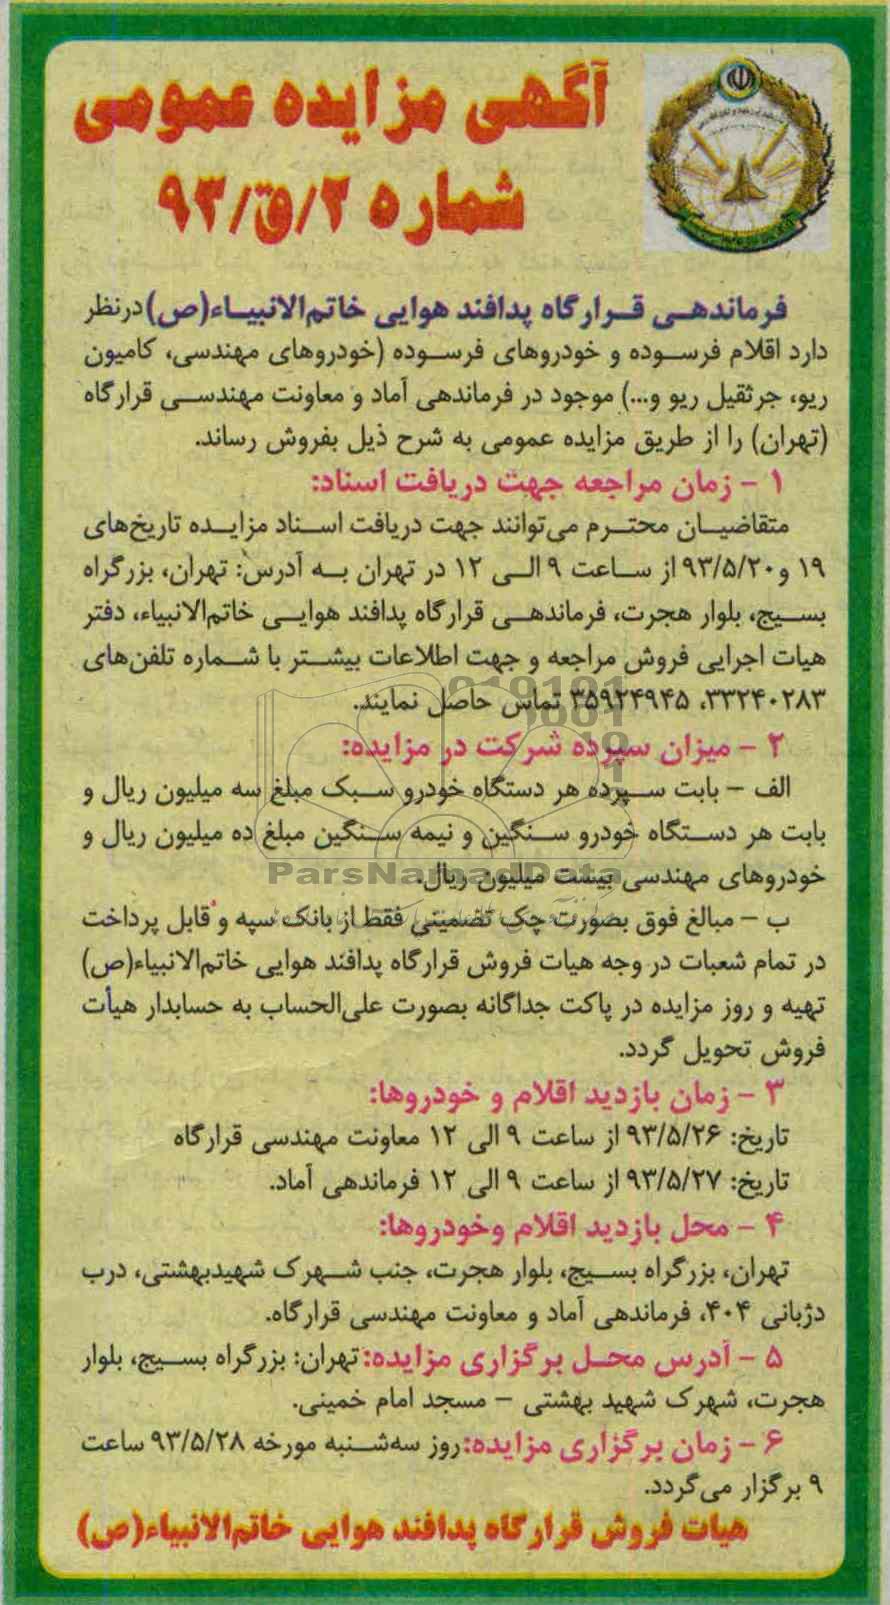 آگهی مزایده عمومی
شماره ۲/ق/۹۳
فرماندهی قرارگاه پدافند هوایی خاتم‌الانبیاء(ص) درنظر
دارد اقلام فرسوده و خودروهای فرسوده (خودروهای مهندسی، کامیون
ریو، جرثقیل ریو و...) موجود در فرماندهی آماد و معاونت مهندسی قرارگاه
(تهران) را از طریق مزایده عمومی به شرح ذیل بفروش رساند.
۱ - زمان مراجعه جهت دریافت اسناد:
متقاضیان محترم می‌توانند جهت دریافت اسناد مزایده تاریخ‌های
۱۹ و ۹۳/۵/۲۰ از ساعت ۹ الی ۱۲ در تهران به آدرس: تهران، بزرگراه
بسیج، بلوار هجرت، فرماندهی قرارگاه پدافند هوایی خاتم‌الانبیاء، دفتر
هیات اجرایی فروش مراجعه و جهت اطلاعات بیشتر با شماره تلفن‌های
۳۳۲۴۰۲۸۳، ۳۵۹۲۴۹۴۵ تماس حاصل نمایند.
۲ - میزان سپرده شرکت در مزایده:
الف - بابت سپرده هر دستگاه خودرو سبک مبلغ سه میلیون ریال و
بابت هر دستگاه خودرو سنگین و نیمه سنگین مبلغ ده میلیون ریال و
خودروهای مهندسی بیست میلیون ریال.
ParsNamadData
ب - مبالغ فوق بصورت چک تضمینی فقط از بانک سپه و قابل پرداخت
در تمام شعبات در وجه هیات فروش قرارگاه پدافند هوایی خاتم‌الانبیاء(ص)
تهیه و روز مزایده در پاکت جداگانه بصورت علی‌الحساب به حسابدار هیأت
فروش تحویل گردد.
۳ - زمان بازدید اقلام و خودروها:
تاریخ: ۹۳/۵/۲۶ از ساعت ۹ الی ۱۲ معاونت مهندسی قرارگاه
تاریخ: ۹۳/۵/۲۷ از ساعت ۹ الی ۱۲ فرماندهی آماد.
۴ - محل بازدید اقلام وخودروها:
تهران، بزرگراه بسیج، بلوار هجرت، جنب شهرک شهیدبهشتی، درب
دژبانی ۴۰۴، فرماندهی آماد و معاونت مهندسی قرارگاه.
۵ - آدرس محل برگزاری مزایده: تهران: بزرگراه بسیج، بلوار
هجرت، شهرک شهید بهشتی - مسجد امام خمینی.
۶ - زمان برگزاری مزایده: روز سه‌شنبه مورخه ۹۳/۵/۲۸ ساعت
۹ برگزار می‌گردد.
هیات فروش قرارگاه پدافند هوایی خاتم‌الانبیاء(ص)